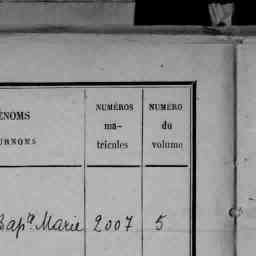 ÉNOMS
URNOMS
NUMÉROS
ma-
tricules
NUMÉRO
du
volume
Bap^te Marie 2007 5